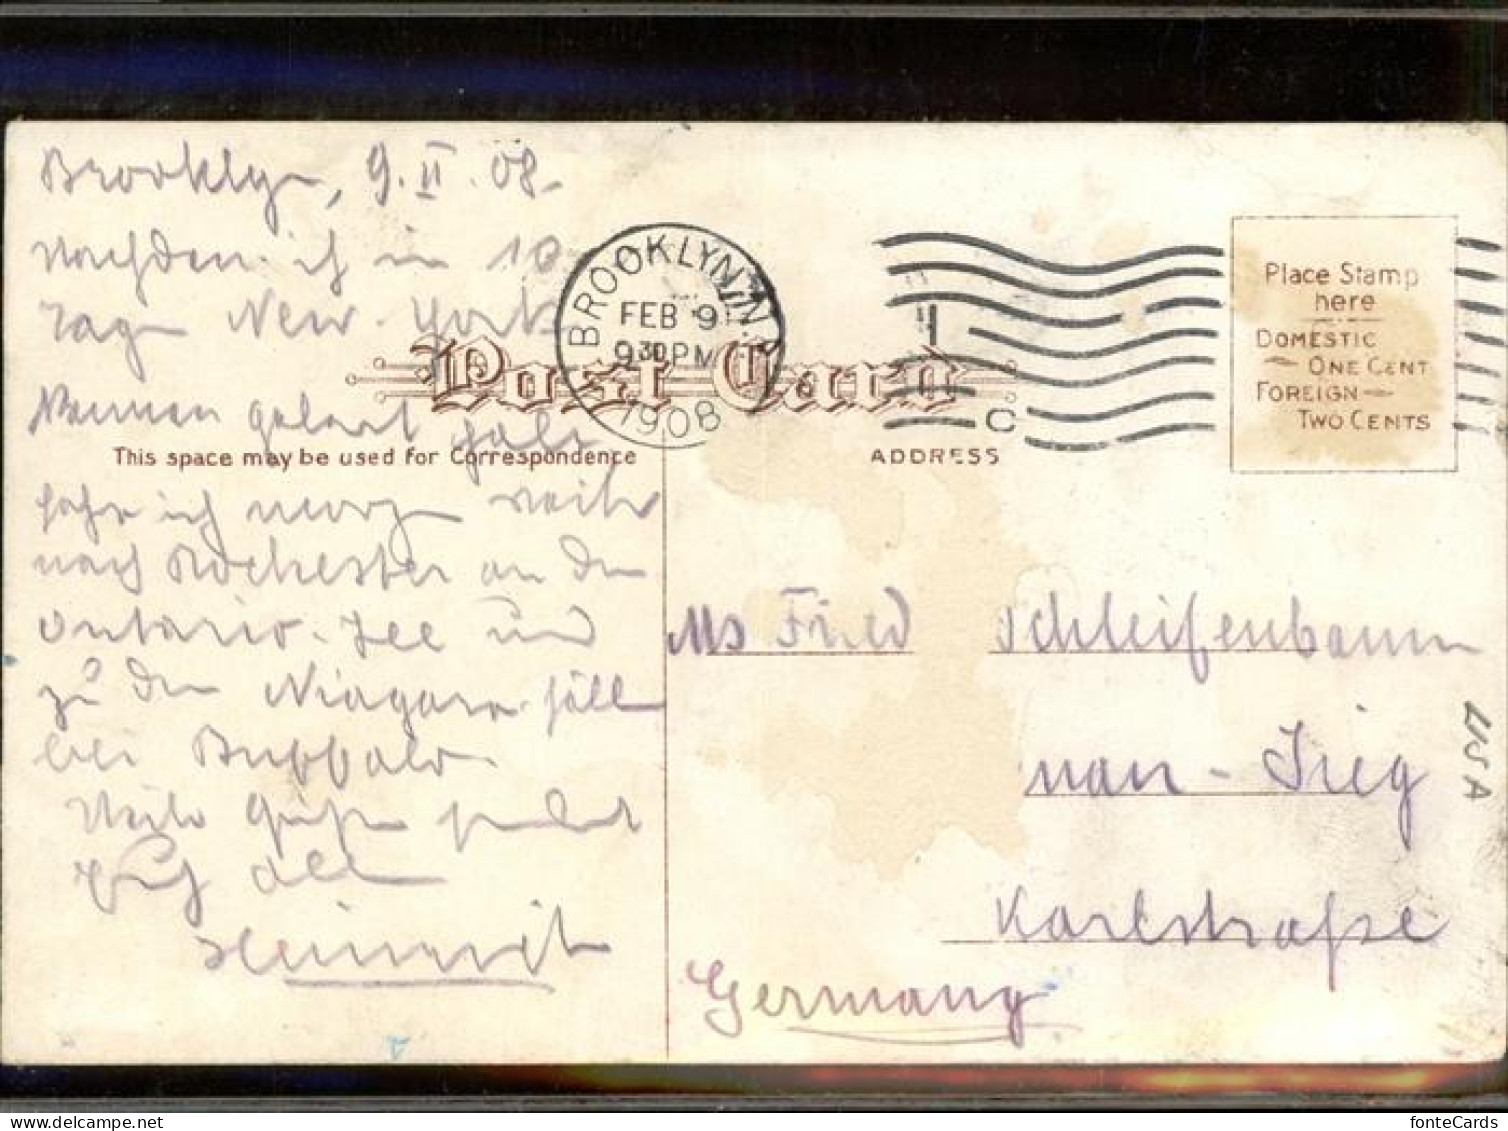 Brooklyn, 9. II. 08.
Nachdem ich in 10
Tagen New-York
kennen gelernt habe
fahre ich morgen weiter
nach Rochester an den
Ontario-See und
zu den Niagara-fällen
bei Buffalo.
Viele Grüße sendet
Euch allen
Heinrich
BROOKLYN, N.Y.
FEB 9
9 30 PM
1908
C
Post Card
This space may be used for Correspondence
ADDRESS
Place Stamp
here
DOMESTIC
ONE CENT
FOREIGN
TWO CENTS
Fried Schleifenbaum
Sieg
Karlstraße
Germany
USA
fonteCards
www.delcampe.net